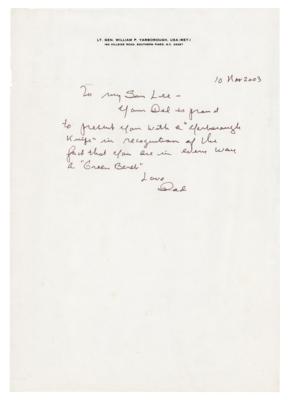 LT. GEN. WILLIAM P. YARBOROUGH, USA (RET.)
160 HILLSIDE ROAD, SOUTHERN PINES, N.C. 28387
10 Nov 2003
To my Son Lee -
Your Dad is proud
to present you with a "Yarborough
Knife" in recognition of the
fact that you are in every way
a "Green Beret"
Love
Dad